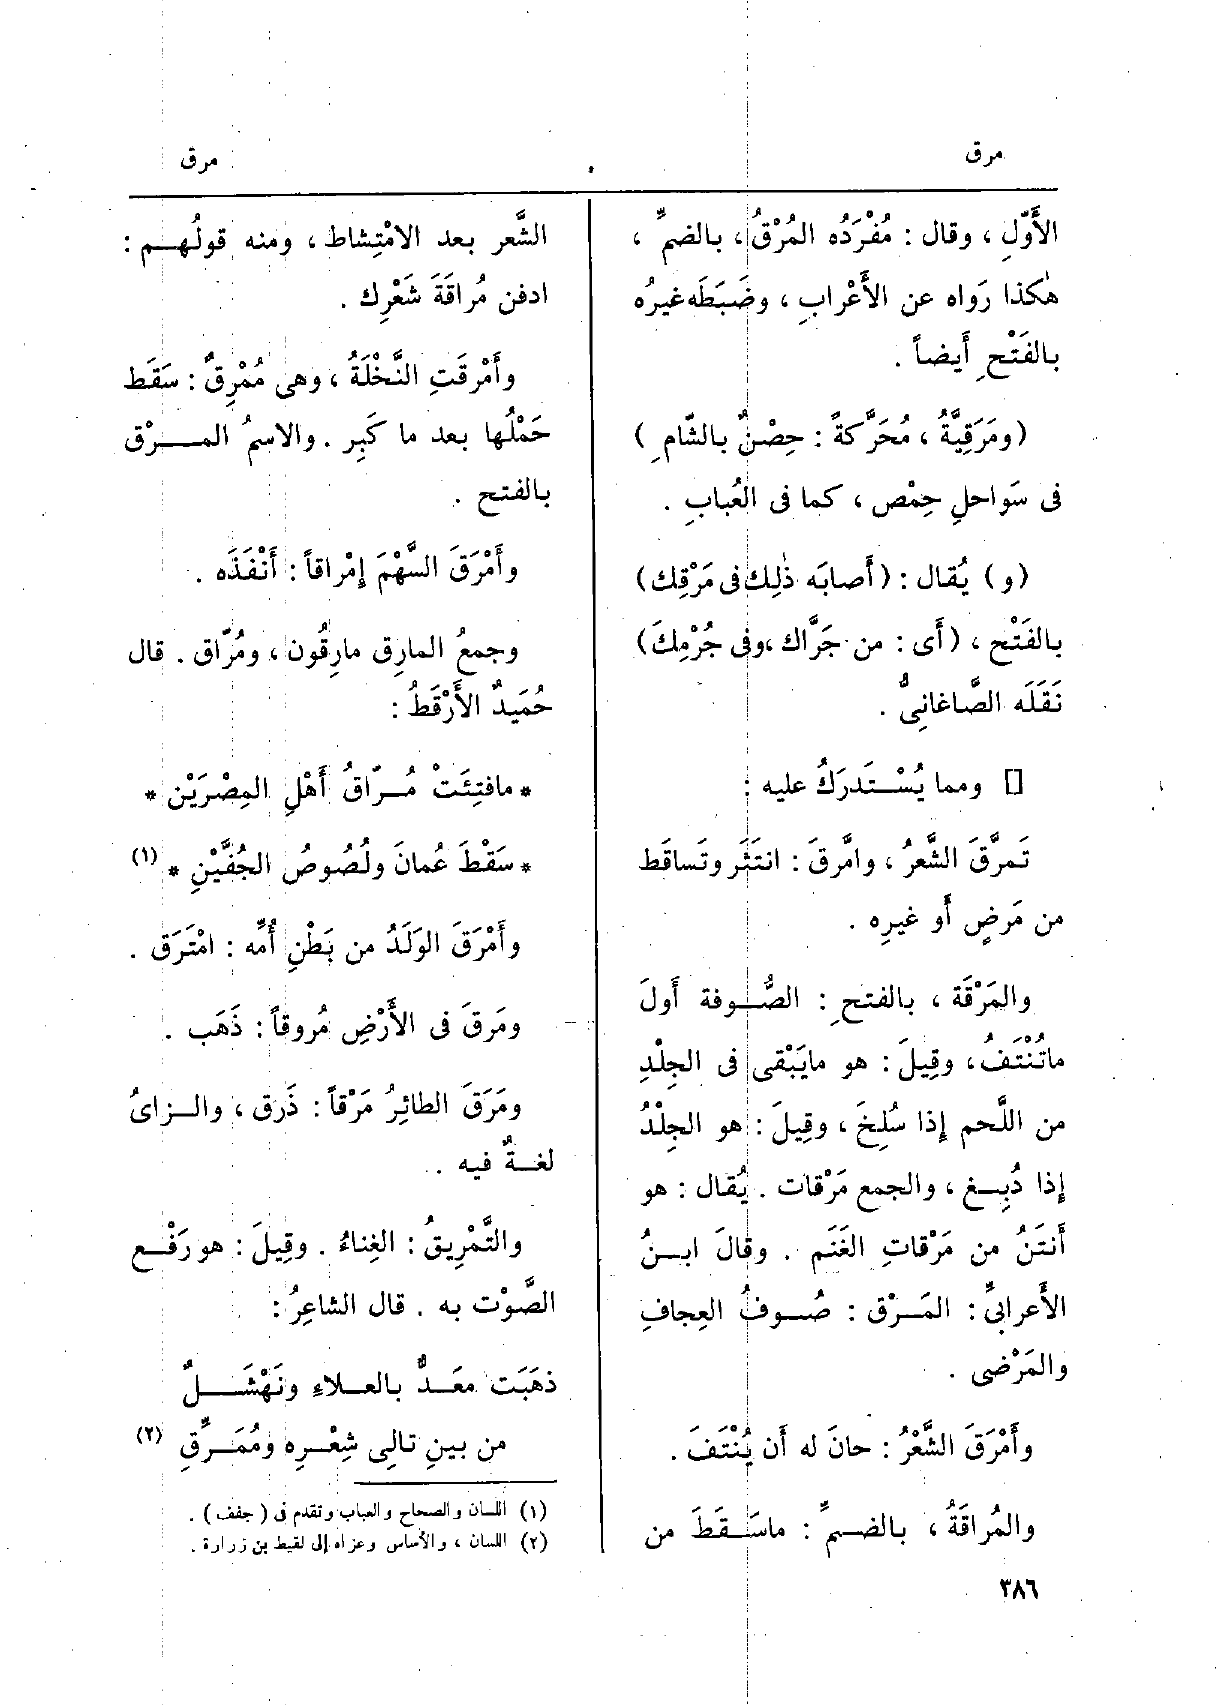 مرق
مرق
الأَوّلِ ، وقال : مُفْرَدُه المُرْقُ ، بالضمِّ ،
هٰكذا رَواه عن الأَعْرابِ ، وضَبَطَه غيرُه
بالفَتْحِ أَيضاً .
(ومَرَقِيَّةُ ، مُحَرَّكةً : حِصْنٌ بالشّامِ )
فى سَواحلِ حِمْص ، كما فى العُبابِ .
(و) يُقال : (أَصابَه ذٰلِك فى مَرْقِك)
بالفَتْح ، (أَى : من جَرَّاك ،وفى جُرْمِكَ)
نَقَلَه الصَّاغانِىُّ .
[] ومما يُسْتَدرَكُ عليه :
تَمرَّقَ الشَّعرُ ، وامَّرقَ : انتَثَر وتَساقَط
من مَرضٍ أَو غيرِه .
والمَرْقَة ، بالفتحِ : الصُّوفة أَولَ
ماتُنْتَفُ، وقِيلَ : هو مايَبْقى فى الجِلْدِ
من اللَّحم إِذا سُلِخَ ، وقِيلَ : هو الجِلْدُ
إِذا دُبِغ ، والجمع مَرْقات . يُقال : هو
أَنتَنُ من مَرْقاتِ الغَنَم . وقالَ ابنُ
الأَعرابىِّ : المَرْق : صُوفُ العِجافِ
والمَرْضى .
وأَمْرَقَ الشَّعْرُ : حانَ له أَن يُنْتَفَ .
والمُراقَةُ ، بالضمِّ : ماسَقَطَ من
الشَّعر بعد الامْتِشاط ، ومنه قولُهم :
ادفن مُراقَةَ شَعْرِك .
وأَمْرقَتِ النَّخْلَةُ ، وهى مُمْرِقٌ : سَقَط
حَمْلُها بعد ما كَبِر . والاسمُ المَرْق
بالفتح .
وأَمْرَقَ السَّهْمَ إِمْراقاً : أَنْفَذَه .
وجمعُ المارِق مارِقُون ، ومُرّاق . قال
حُمَيدٌ الأَرْقَطُ :
* مافتِئَتْ مُرّاقُ أَهْلِ المِصْرَيْن *
* سَقْطَ عُمانَ ولُصُوصُ الجُفَّيْنِ * (١)
وأَمْرَقَ الوَلَدُ من بَطْنِ أُمِّه : امْتَرَق .
ومَرقَ فى الأَرْضِ مُروقاً : ذَهَب .
ومَرَقَ الطائِرُ مَرْقاً : ذَرَق ، والزاىُ
لغةٌ فيه .
والتَّمْرِيقُ : الغِناءُ . وقِيلَ : هو رَفْع
الصَّوْت به . قال الشاعِرُ :
ذهَبَت معَدٌّ بالعلاءِ ونَهْشَلٌ
من بينِ تالِى شِعْرِه ومُمَرِّقِ (٢)
(١) اللسان والصحاح والعباب وتقدم فى ( جفف ) .
(٢) اللسان ، والأساس وعزاه إلى لقيط بن زرارة .
٣٨٦